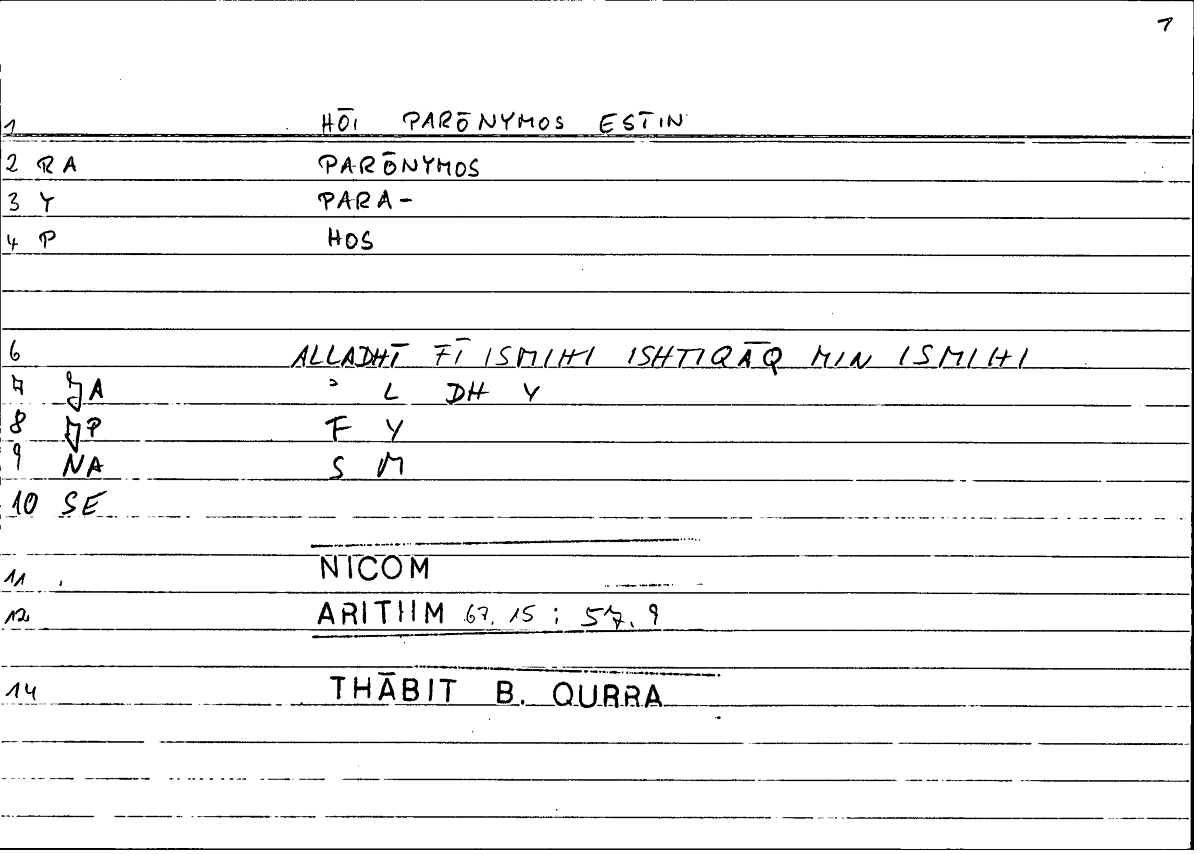 1
1 HŌI PARŌNYMOS ESTIN
2 RA PARŌNYMOS
3 Y PARA-
4 P HOS
6 ALLADHĪ FĪ ISMIHI ISHTIQĀQ MIN ISMIHI
7 JA ʾ L DH Y
8 JP F Y
9 NA S M
10 SE
11 NICOM
12 ARITHM 67. 15 ; 57. 9
14 THĀBIT B. QURRA